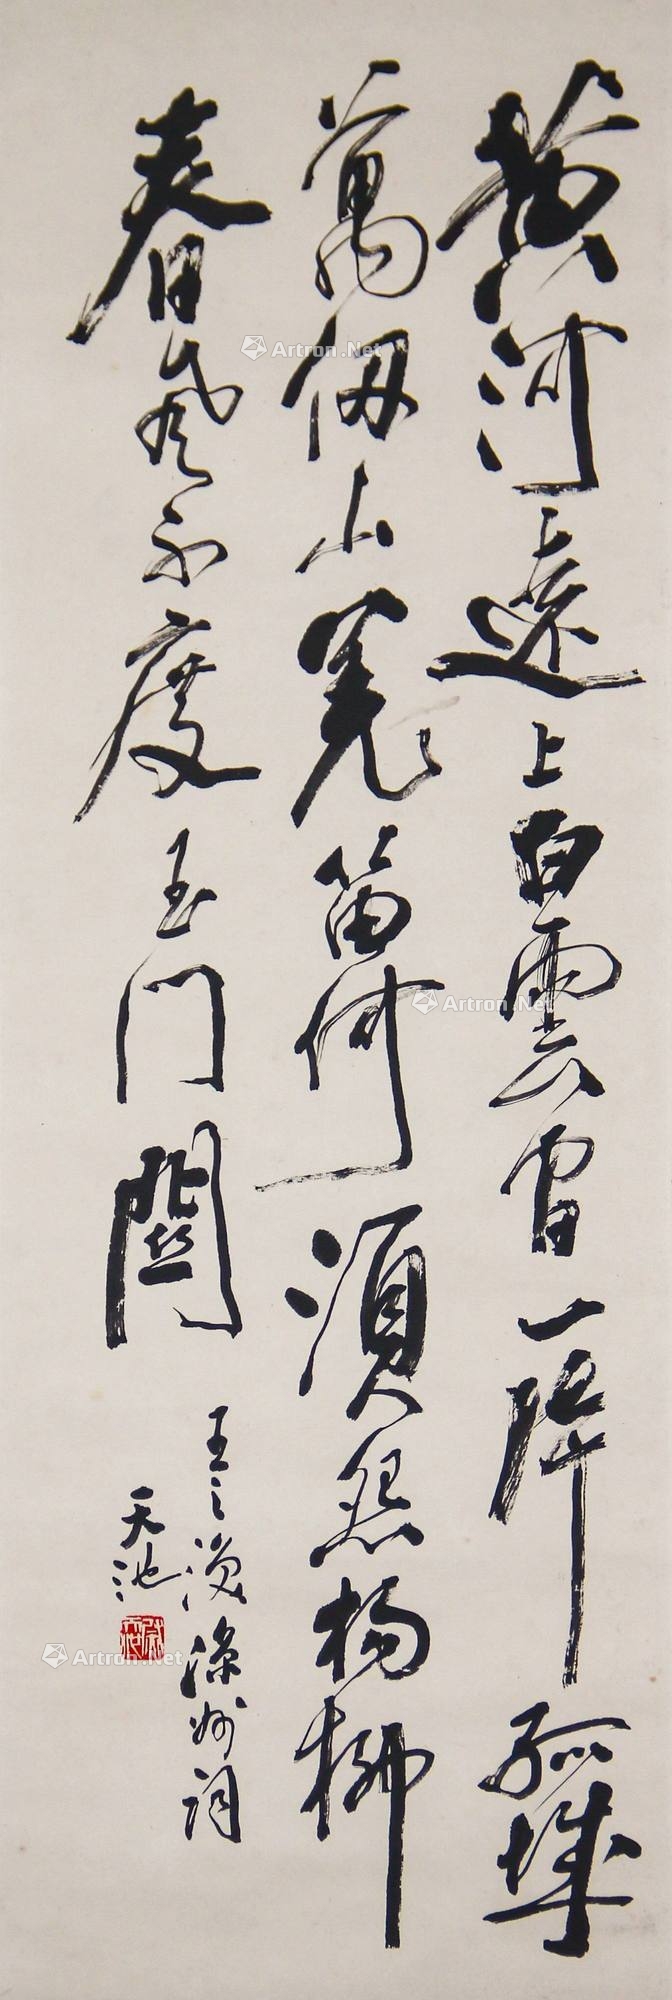 黄河遠上白雲間一片孤城
萬仞山羌笛何須怨楊柳
春風不度玉門關
王之渙涼州詞
天池
Artron.Net
Artron.Net
Artron.Net